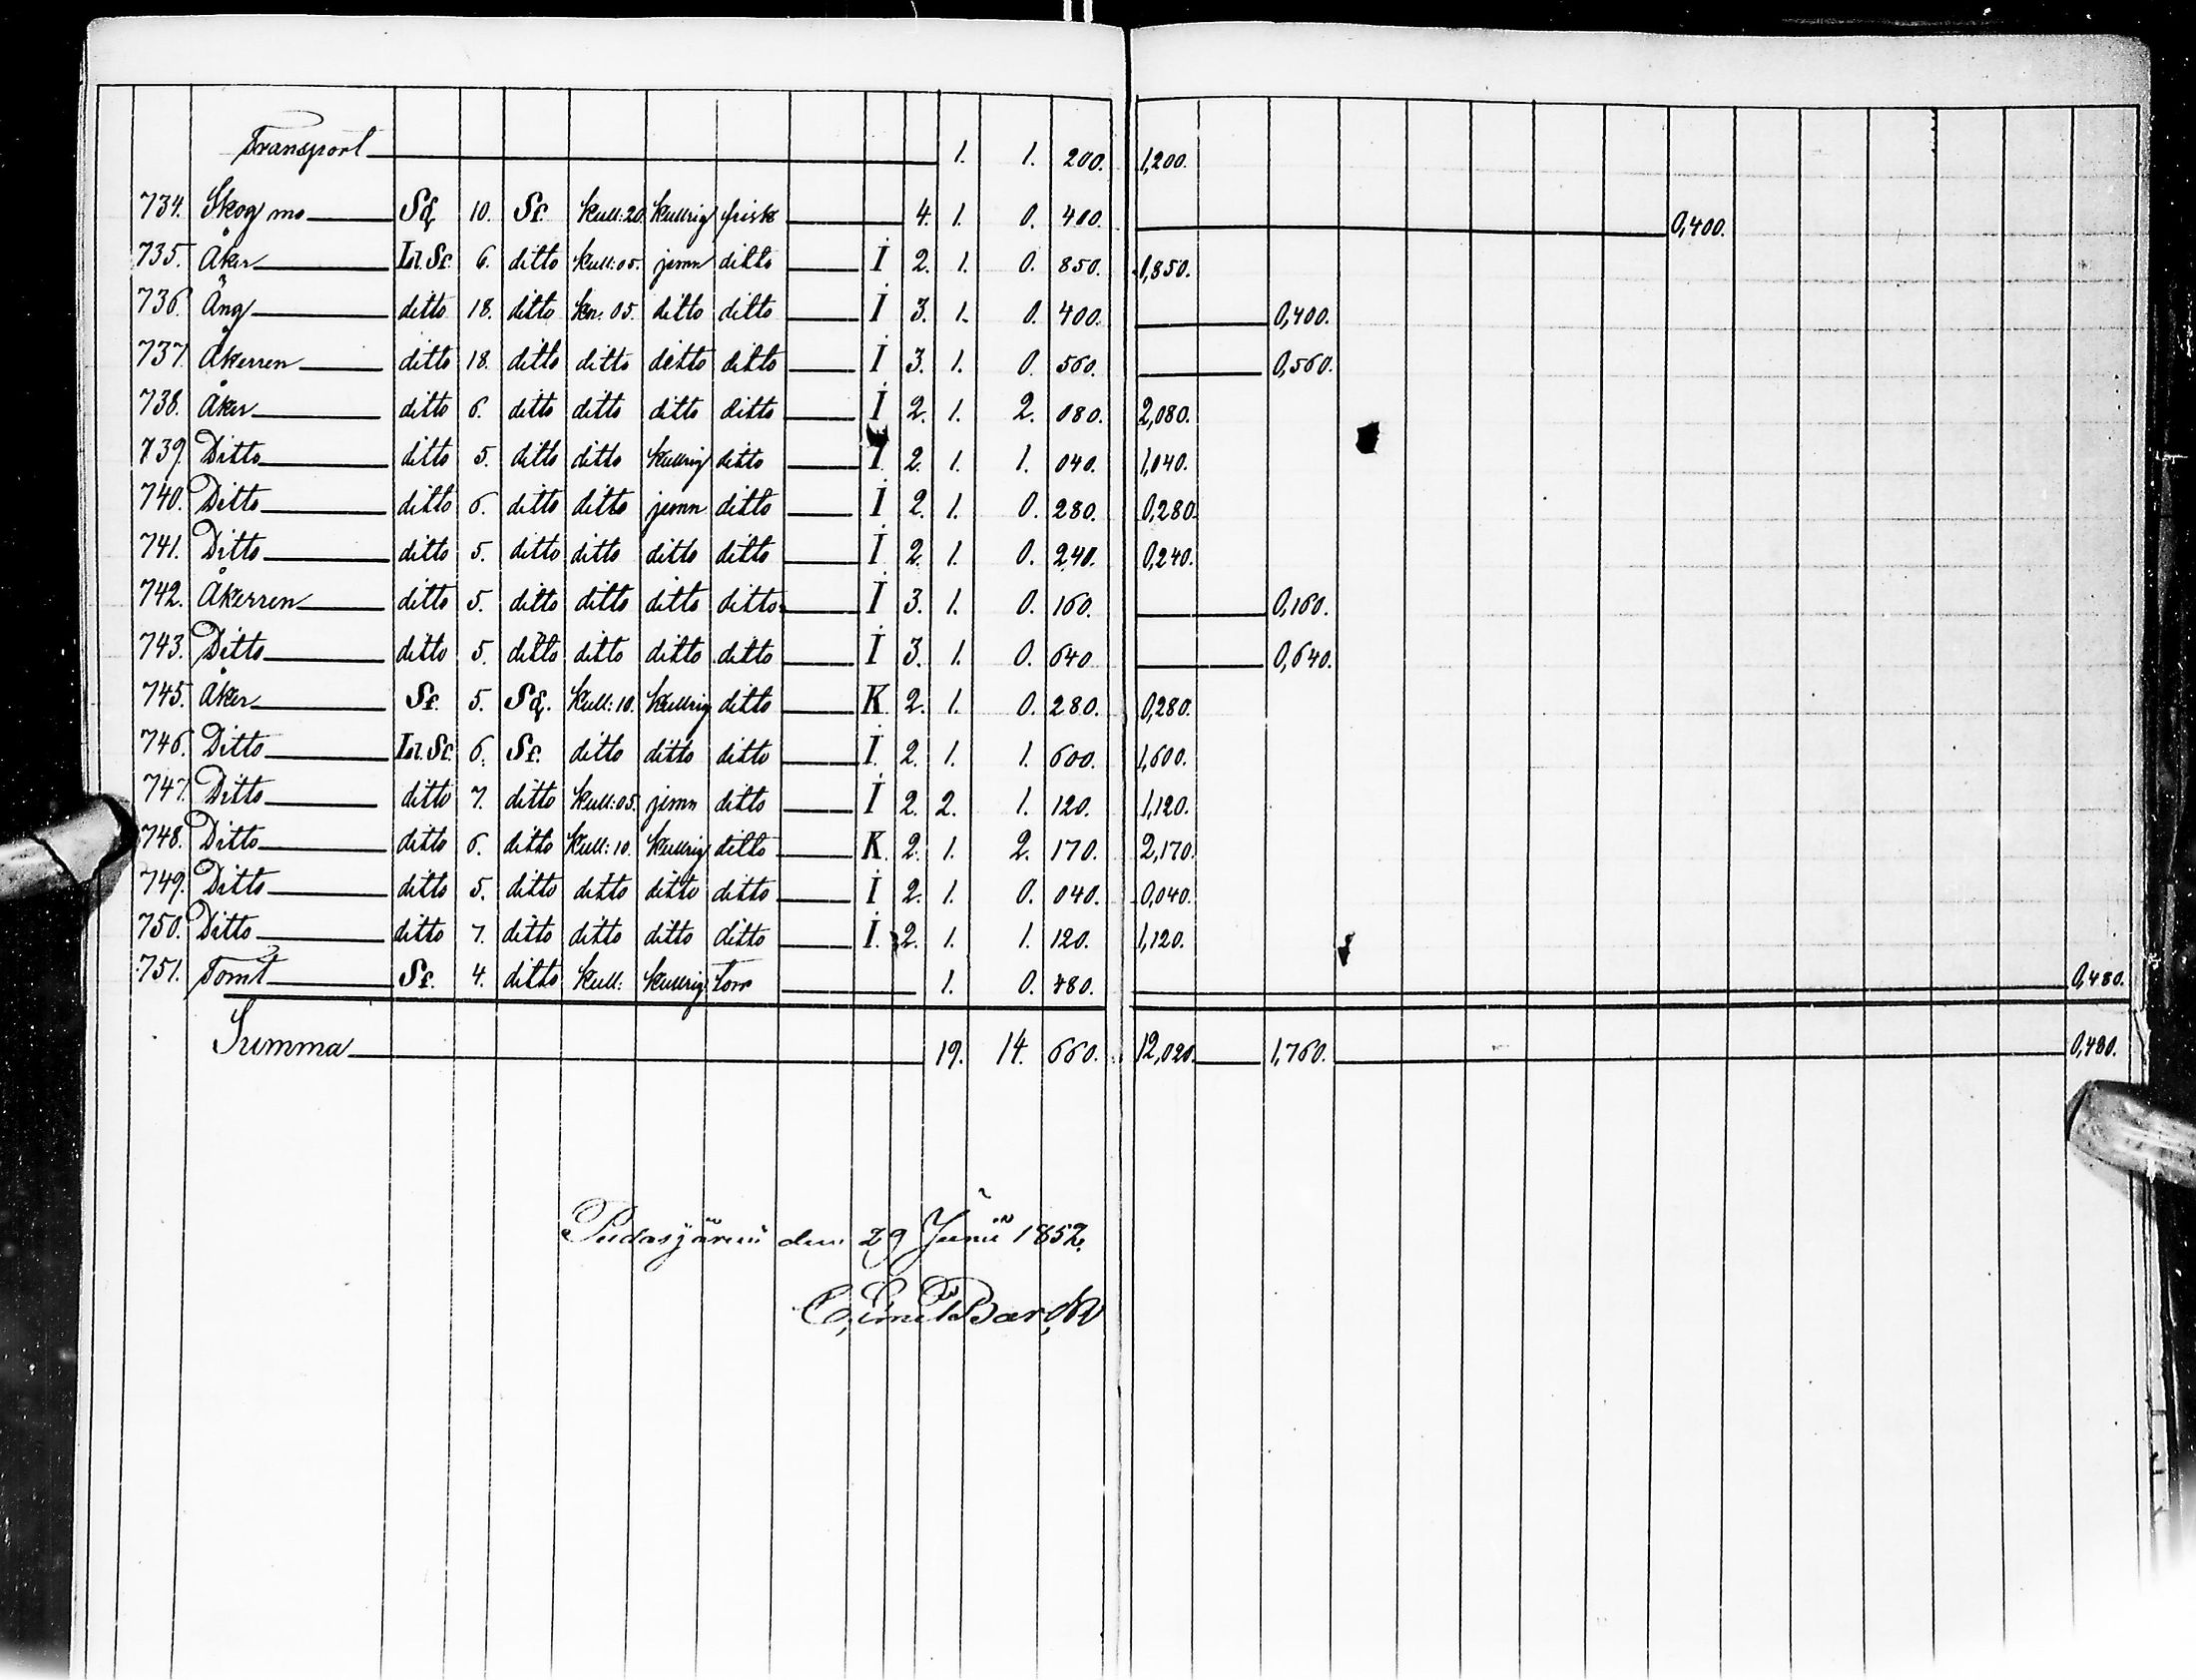 Transport 1. 1. 200. 1,200.
734. Skog mo Sg 10. Sf. Kull: 20 Kullrig frisk 4. 1. 0. 400. 0,400.
735. Åker Ld. Sf. 6. ditto Kull: 05. jemn ditto I 2. 1. 0. 850. 0,850.
736. Äng ditto 18. ditto kn: 05. ditto ditto I 3. 1. 0. 400. 0,400.
737. Åkerren ditto 18. ditto ditto ditto ditto I 3. 1. 0. 560. 0,560.
738. Åker ditto 6. ditto ditto ditto ditto I 2. 1. 2. 080. 2,080.
739. Ditto ditto 5. ditto ditto Kullrig ditto I. 2. 1. 1. 040. 1,040.
740. Ditto ditto 6. ditto ditto jemn ditto I 2. 1. 0. 280. 0,280.
741. Ditto ditto 5. ditto ditto ditto ditto I 2. 1. 0. 240. 0,240.
742. Åkerren ditto 5. ditto ditto ditto ditto I 3. 1. 0. 160. 0,160.
743. Ditto ditto 5. ditto ditto ditto ditto I 3. 1. 0. 640 0,640.
745. Åker Sf. 5. Sg. Kull: 10. Kullrig ditto K. 2. 1. 0. 280. 0,280.
746. Ditto Ld. Sf. 6. Sf. ditto ditto ditto I. 2. 1. 1. 600. 1,600.
747. Ditto ditto 7. ditto Kull: 05. jemn ditto I 2. 2. 1. 120. 1,120.
748. Ditto ditto 6. ditto Kull: 10. Kullrig ditto K. 2. 1. 2. 170. 2,170.
749. Ditto ditto 5. ditto ditto ditto ditto I 2. 1. 0. 040. 0,040.
750. Ditto ditto 7. ditto ditto ditto ditto I. 2. 1. 1. 120. 1,120.
751. Tomt Sf. 4. ditto Kull: Kullrig Torr 1. 0. 480. 0,480.
Summa 19. 14. 660. 12,020. 1,760. 0,480.
Pudasjärvi den 29 Junii 1852.
C, Emil